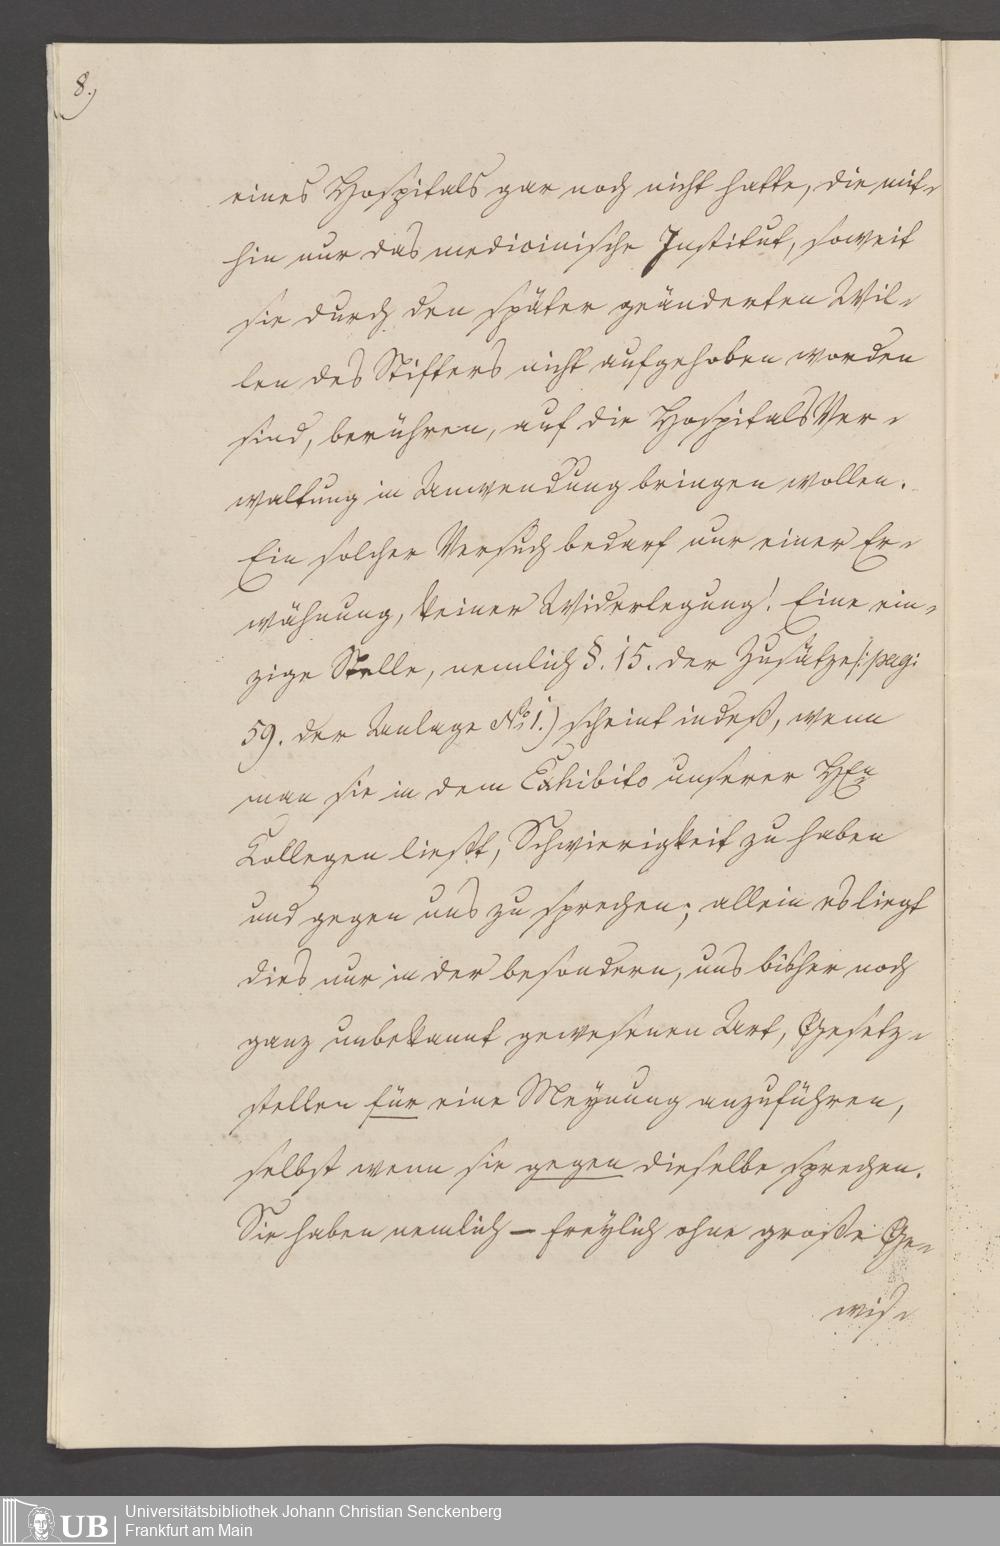 8.)
eines Hospitals gar noch nicht hatte, die mit-
hin nur das medicinische Institut, soweit
sie durch den später geänderten Wil-
len des Stifters nicht aufgehoben worden
sind, berühren, auf die Hospitals Ver-
waltung in Anwendung bringen wollen.
Ein solcher Versuch bedarf nur einer Er-
wähnung, keiner Widerlegung! Eine ein-
zige Stelle, nemlich §. 15. der Zusätze /: pag:
59. der Anlage No 1.) scheint indeß, wenn
man sie in dem Exhibito unserer HEn
Collegen ließt, Schwierigkeit zu haben
und gegen uns zu sprechen; allein es liegt
dies nur in der besondern, uns bisher noch
ganz unbekannt gewesenen Art, Gesetz-
stellen für eine Meynung anzuführen,
selbst wenn sie gegen dieselbe sprechen.
Sie haben nemlich – freylich ohne große Ge-
wis-
UB
Universitätsbibliothek Johann Christian Senckenberg
Frankfurt am Main